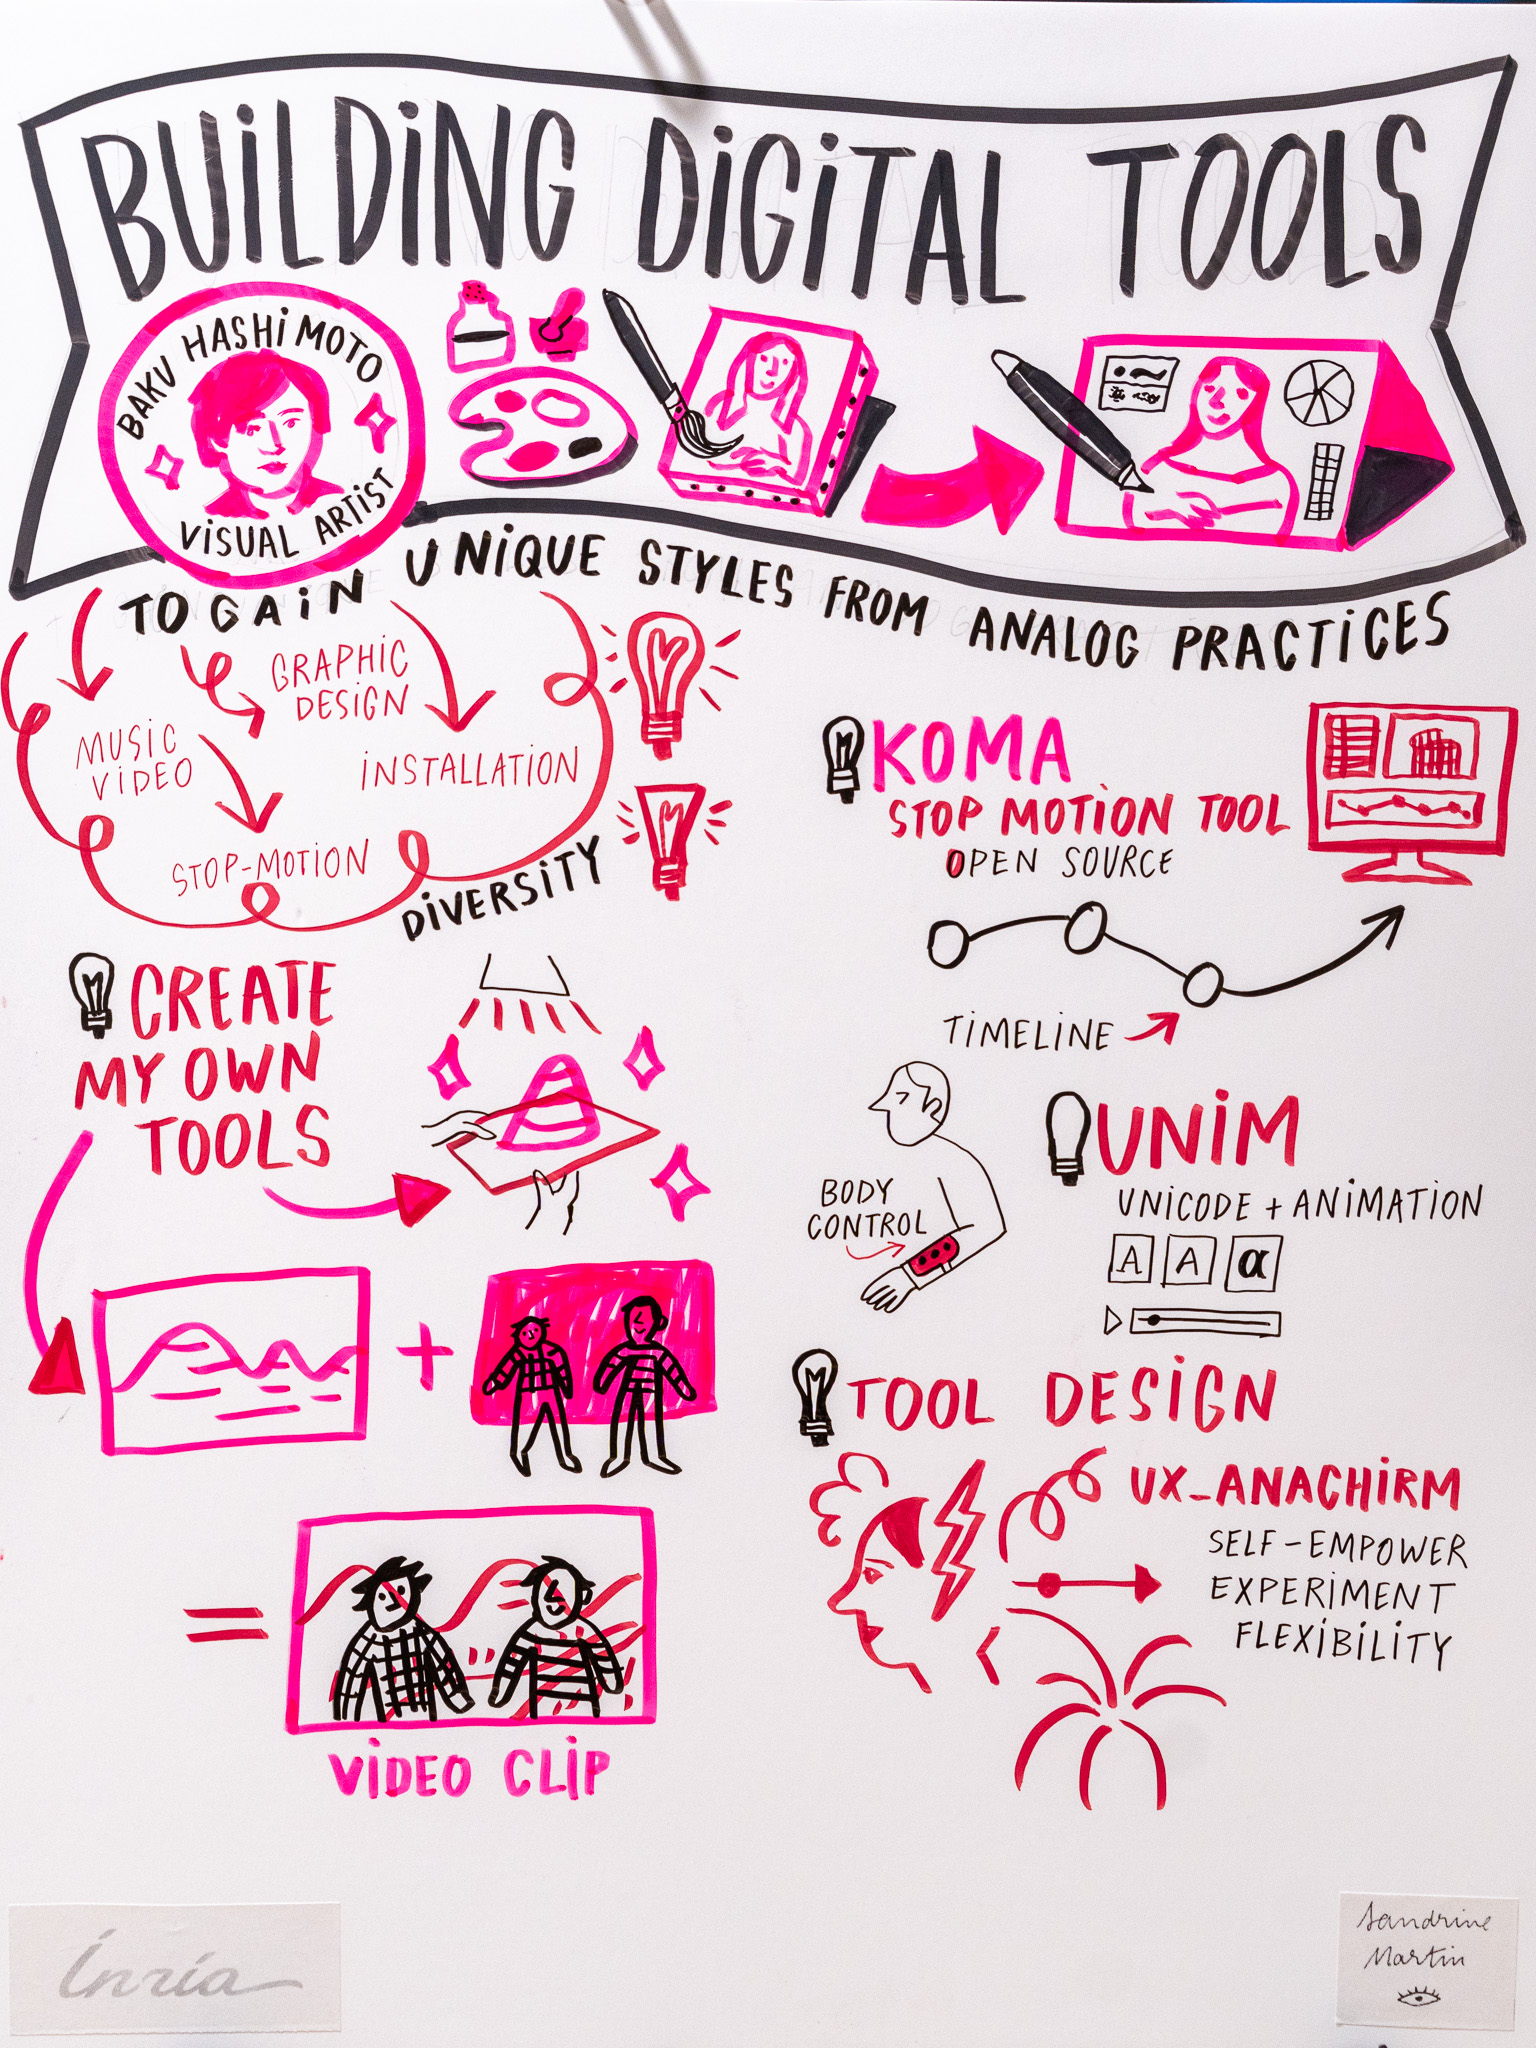 BUiLDiNG DiGiTAL TOOLS
BAKU HASHiMOTO
ViSUAL ARTiST
TO GAiN UNiQUE STYLES FROM ANALOG PRACTiCES
GRAPHiC
DESiGN
MUSiC
ViDEO
iNSTALLATiON
STOP-MOTiON
DiVERSiTY
CREATE
MY OWN
TOOLS
+
=
ViDEO CLiP
KOMA
STOP MOTiON TOOL
OPEN SOURCE
TiMELiNE
BODY
CONTROL
UNiM
UNiCODE + ANiMATiON
A A α
TOOL DESiGN
UX_ANACHiRM
SELF-EMPOWER
EXPERiMENT
FLEXiBiLiTY
Inria
Sandrine
Martin